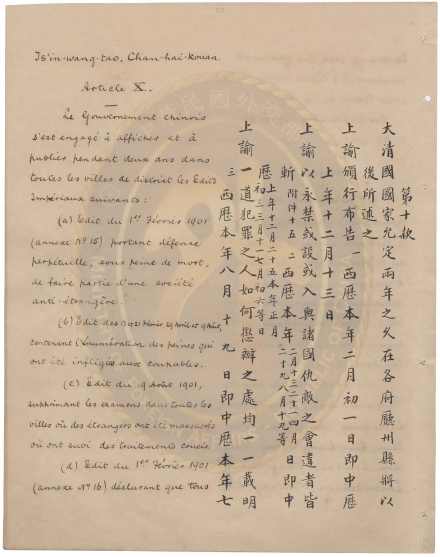 Ts'in-wang-tao, Chan-hai-kouan.
Article X.
Le Gouvernement chinois
s'est engagé à afficher et à
publier pendant deux ans dans
toutes les villes de district les Edits
Impériaux suivants:
(a) Edit du 1er Février 1901
(annexe No 15) portant défense
perpétuelle, sous peine de mort,
de faire partie d'une société
anti-étrangère.
(b) Édits des 13 et 21 Février, 29 Avril et 19 Août,
contenant l'énumération des peines qui
ont été infligées aux coupables.
(c) Edit du 19 Août 1901,
supprimant les examens dans toutes les
villes où des étrangers ont été massacrés
ou ont subi des traitements cruels.
(d) Edit du 1er Février 1901
(annexe No 16) déclarant que tous
第十款
大清國國家允定兩年之久在各府廳州縣將以
後所述之
上諭頒行布告一西歷本年二月初一日即中歷
上年十二月十三日
上諭以永禁或設或入與諸國仇敵之會違者皆
斬附件十五二西歷本年二月十三二十一四月二十九八月十九等日即中
歷上年十二月二十五本年正月初三三月十一七月初六等日
上諭一道犯罪之人如何懲辦之處均一一載明
三西歷本年八月十九日即中歷本年七